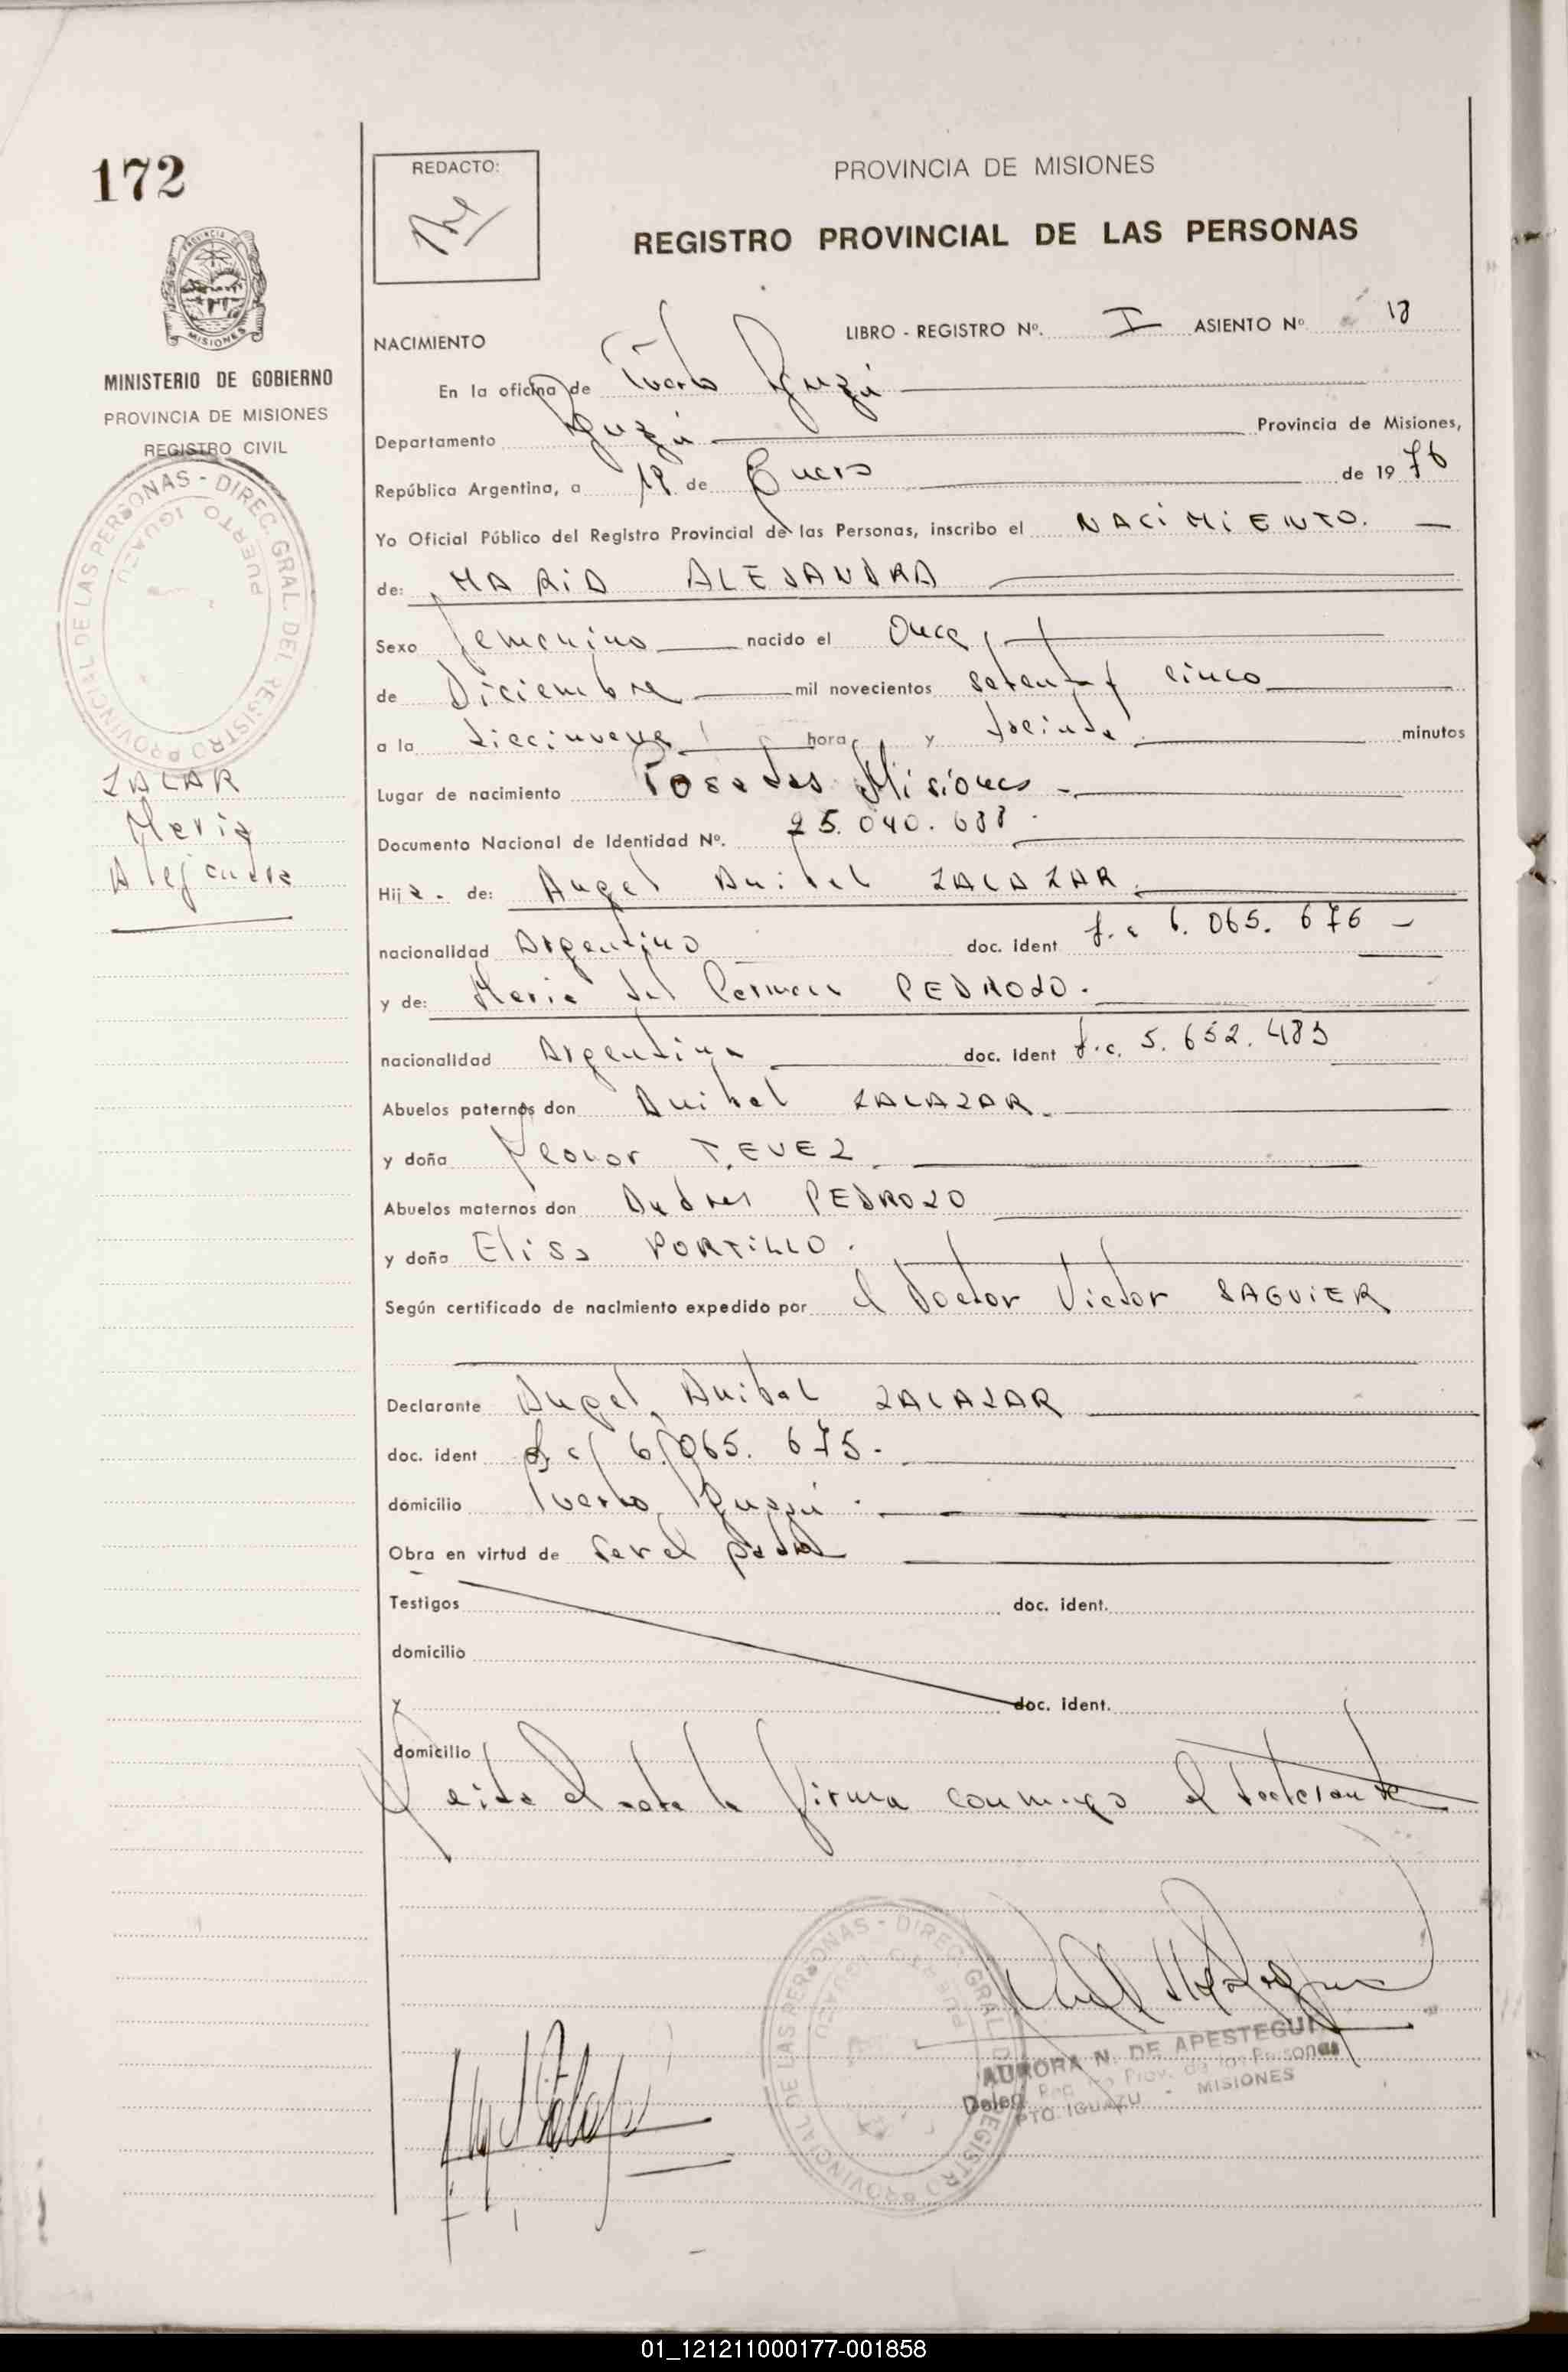 172
REDACTO:
PROVINCIA DE MISIONES
REGISTRO PROVINCIAL DE LAS PERSONAS
PROVINCIA DE
MISIONES
MINISTERIO DE GOBIERNO
PROVINCIA DE MISIONES
REGISTRO CIVIL
DIREC. GRAL. DEL REGISTRO PROVINCIAL DE LAS PERSONAS -
PUERTO IGUAZU
ZALAR
Maria
Alejandra
NACIMIENTO
LIBRO - REGISTRO Nº. I ASIENTO Nº 18
En la oficina de Puerto Iguazú
Departamento Iguazú Provincia de Misiones,
República Argentina, a 19 de Enero de 1976
Yo Oficial Público del Registro Provincial de las Personas, inscribo el NACIMIENTO.
de: MARIA ALEJANDRA
Sexo femenino nacido el Once
de Diciembre mil novecientos setenta y cinco
a la diecinueve hora y treinta minutos
Lugar de nacimiento Posadas Misiones -
Documento Nacional de Identidad Nº. 25.040.688.
Hija. de: Angel Anibal ZALAZAR.
nacionalidad Argentino doc. ident L.c 6.065.676 -
y de: Maria del Carmen PEDROZO.
nacionalidad Argentina doc. ident L.c. 5.652.483
Abuelos paternos don Anibal ZALAZAR.
y doña Leonor TEVEZ
Abuelos maternos don Andres PEDROZO
y doña Elisa PORTILLO.
Según certificado de nacimiento expedido por el Doctor Victor SAGUIER
Declarante Angel Anibal ZALAZAR
doc. ident 6.065.675.
domicilio Puerto Iguazú.
Obra en virtud de ser el padre
Testigos doc. ident.
domicilio
y doc. ident.
domicilio
Leida el acta la firma conmigo el declarante
DIREC. GRAL. DEL REGISTRO PROVINCIAL DE LAS PERSONAS -
PUERTO IGUAZU
AURORA N. DE APESTEGUI
Deleg. Reg. Prov. de las Personas
PTO. IGUAZU - MISIONES
01_121211000177-001858